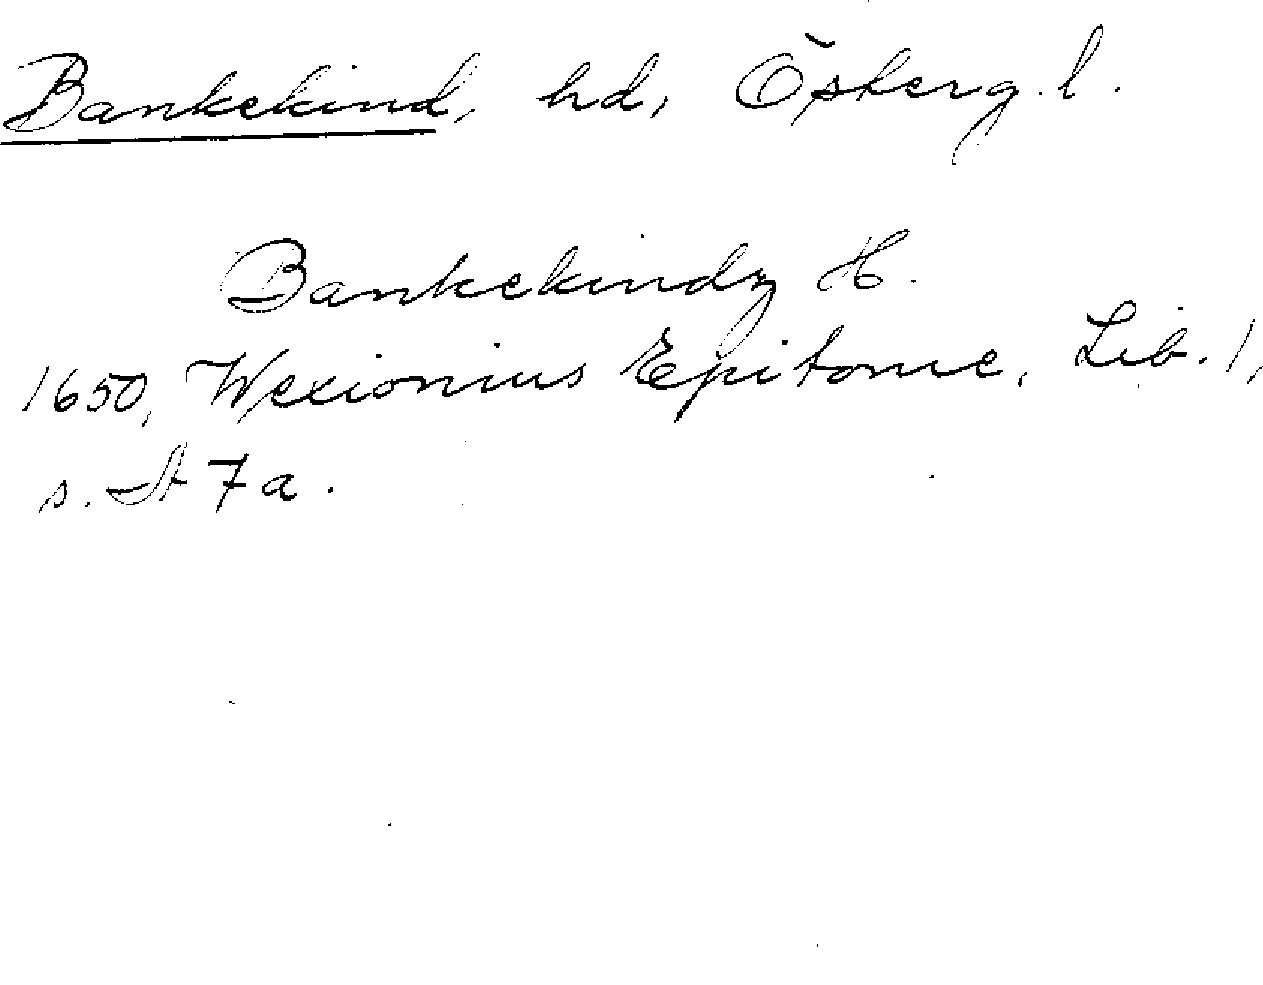 Bankekind, hd, Österg. l.
Bankekindz H.
1650, Wexionius Epitome, Lib. 1,
s. 7a.